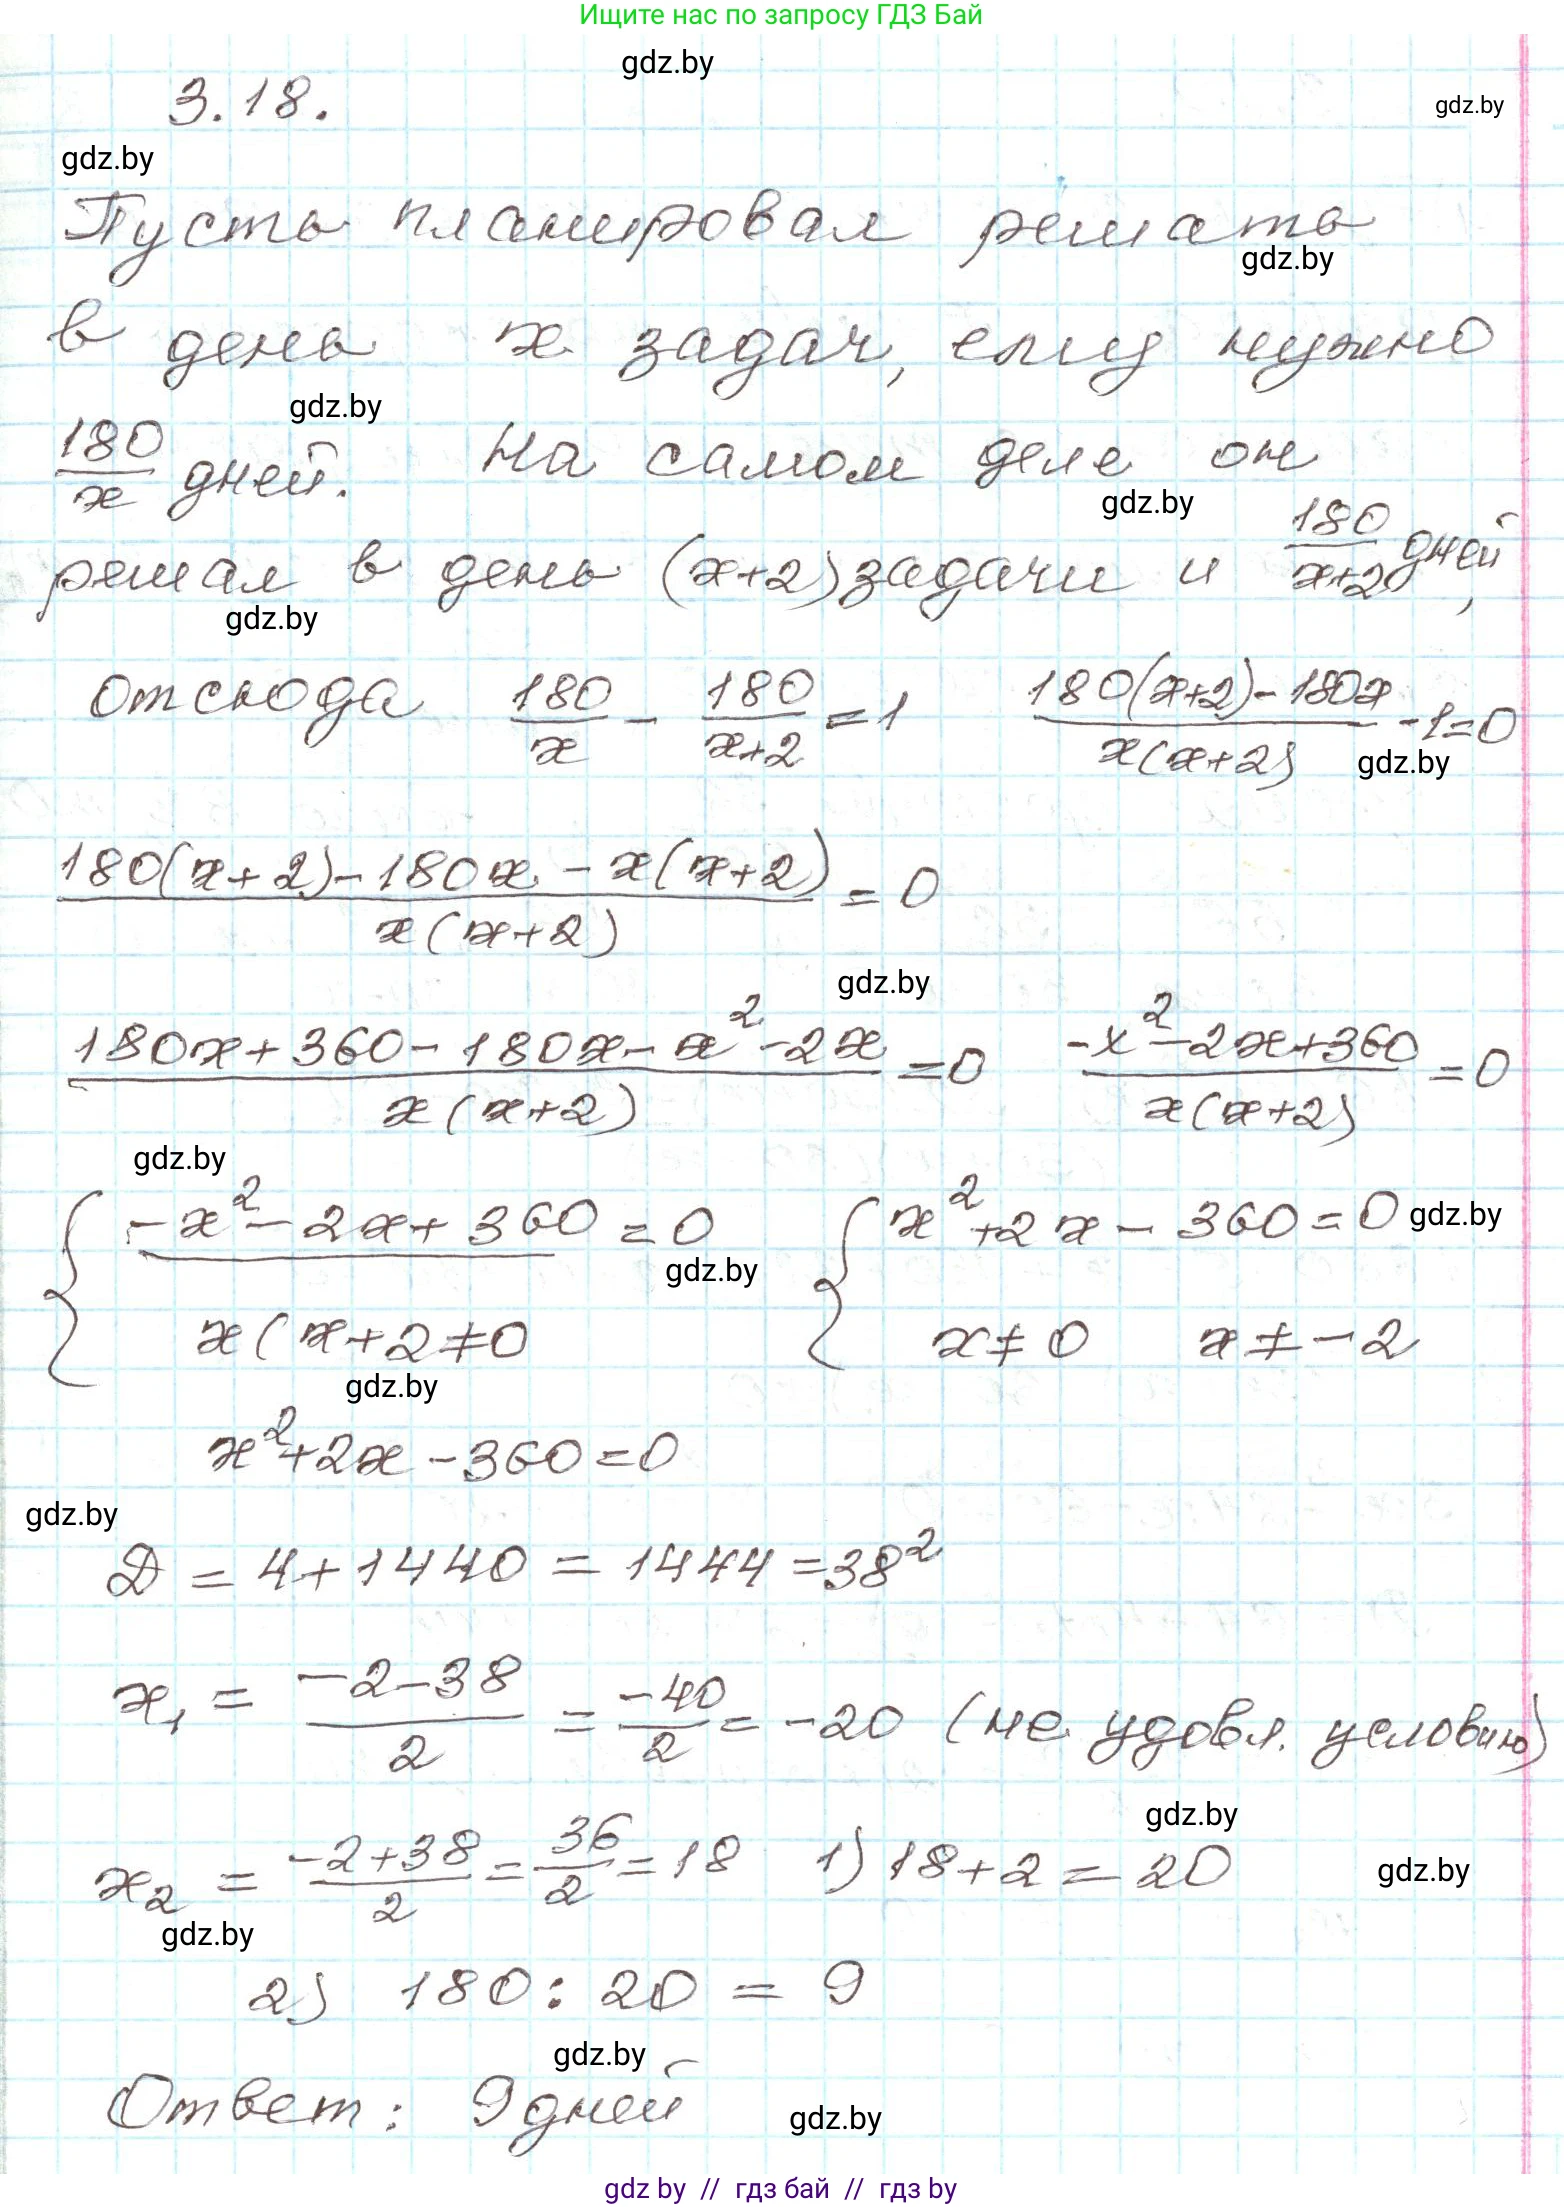 Ищите нас по запросу ГДЗ Бай
gdz.by
3.18.
gdz.by
gdz.by
Пусть планировал решать
gdz.by
в день x задач, ему нужно
gdz.by
180/x дней. На самом деле он
gdz.by
решал в день (x+2) задачи и 180/(x+2) дней,
gdz.by
отсюда 180/x - 180/(x+2) = 1 (180(x+2)-180x)/(x(x+2)) - 1 = 0
gdz.by
(180(x+2)-180x-x(x+2))/(x(x+2)) = 0
gdz.by
(180x+360-180x-x²-2x)/(x(x+2)) = 0 (-x²-2x+360)/(x(x+2)) = 0
gdz.by
{ -x²-2x+360=0 { x²+2x-360=0 gdz.by
gdz.by
x(x+2≠0 x≠0 x≠-2
gdz.by
x²+2x-360=0
gdz.by
D = 4+1440 = 1444 = 38²
x₁ = (-2-38)/2 = -40/2 = -20 (не удовл. условию)
gdz.by
x₂ = (-2+38)/2 = 36/2 = 18 1) 18+2=20 gdz.by
gdz.by
2) 180:20 = 9
gdz.by
Ответ: 9 дней
gdz.by
gdz by // гдз бай // гдз by